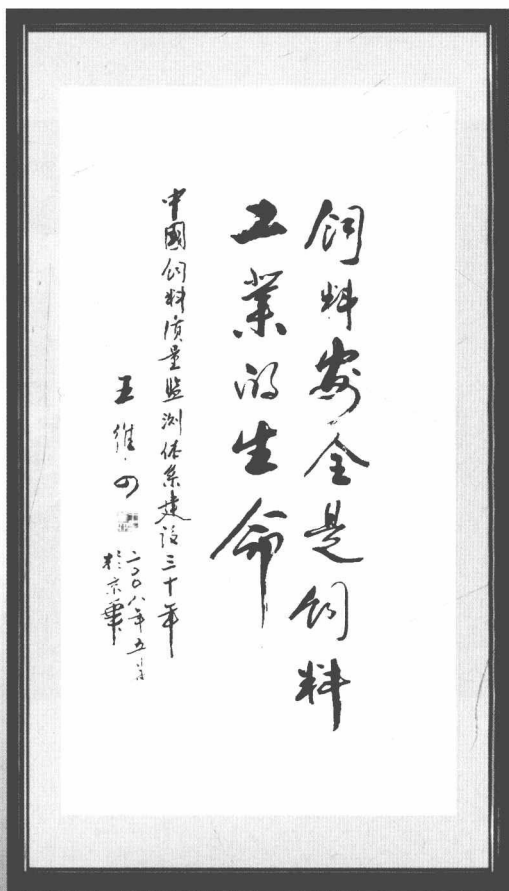 饲料安全是饲料
工業的生命
中國饲料质量监测体系建设三十年
王維四
二〇〇八年五月
於京華